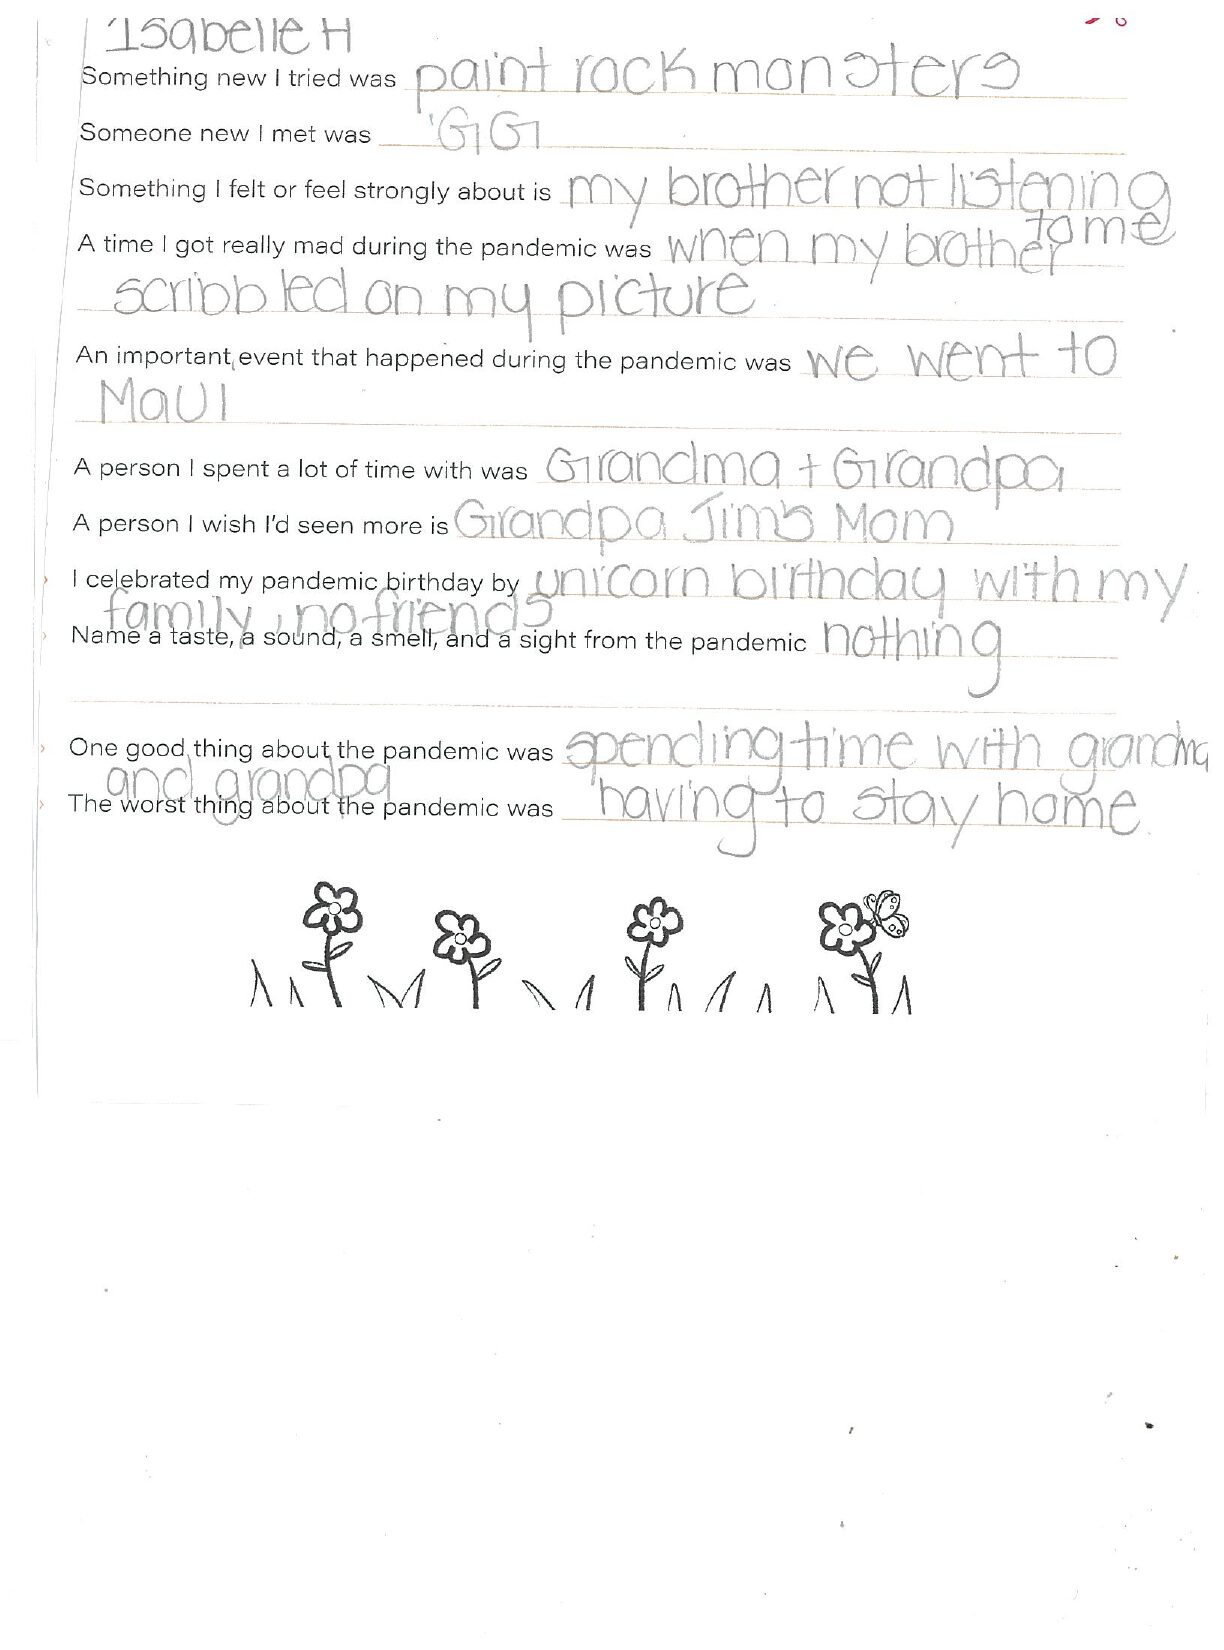 Isabelle H
Something new I tried was paint rock monsters
Someone new I met was GIGI
Something I felt or feel strongly about is my brother not listening
to me
A time I got really mad during the pandemic was when my brother
scribbled on my picture
An important event that happened during the pandemic was we went to
Maui
A person I spent a lot of time with was Grandma + Grandpa
A person I wish I'd seen more is Grandpa Jim's Mom
I celebrated my pandemic birthday by unicorn birthday with my
family, no friends
Name a taste, a sound, a smell, and a sight from the pandemic nothing
One good thing about the pandemic was spending time with grandma
and grandpa
The worst thing about the pandemic was having to stay home